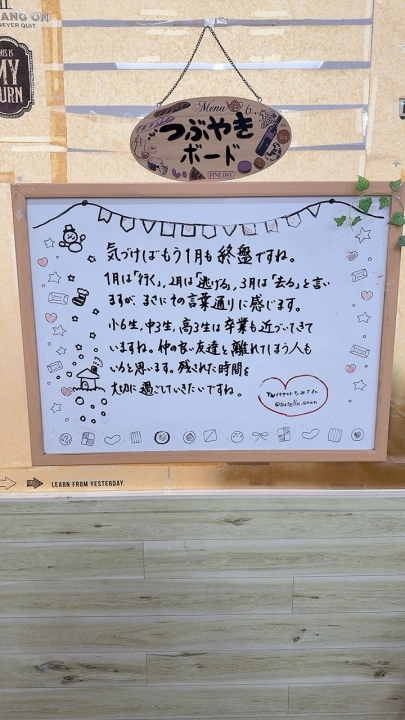 HANG ON
NEVER QUIT
THIS IS
MY
TURN
Menu
つぶやき
ボード
FINE DAY
気づけばもう1月も終盤ですね。
1月は「行く」、2月は「逃げる」、3月は「去る」と言い
ますが、まさにその言葉通りに感じます。
小6生、中3生、高3生は卒業も近づいてきて
いますね。仲の良い友達と離れてしまう人も
いると思います。残された時間を
大切に過ごしていきたいですね。
LEARN FROM YESTERDAY.